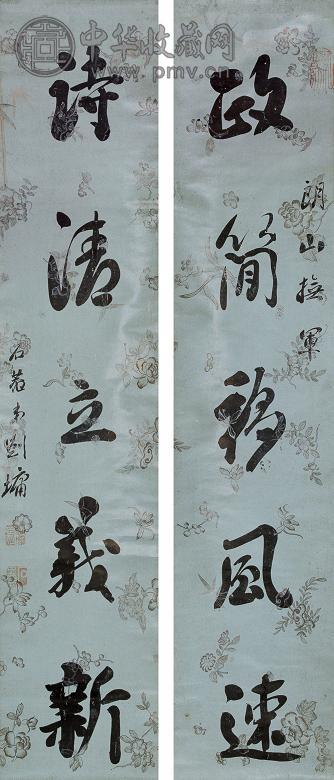 政簡移風速
朗山撫軍
詩清立義新
石菴弟劉墉
中华收藏网
www.pmv.cn